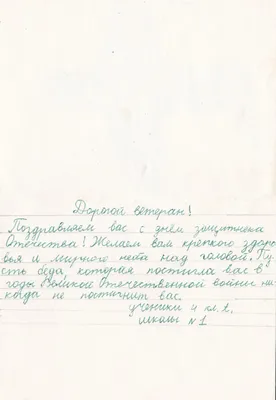 Дорогой ветеран!
Поздравляем вас с днём защитника
Отечества! Желаем вам крепкого здоро
вья и мирного неба над головой. Пу
сть беда, которая постигла вас в
годы Великой Отечественной войны ни
когда не постигнит вас.
ученики 4 кл. 2,
школы №1